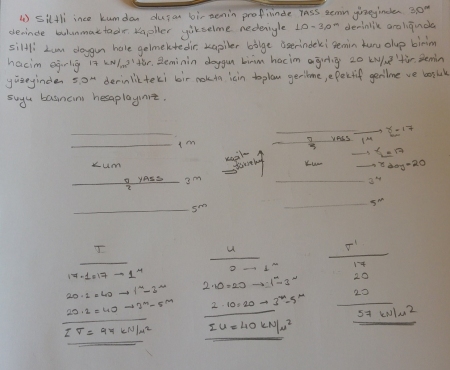 4) Siltli ince kumdan oluşan bir zemin profilinde YASS zemin yüzeyinden 3,0m
derinde bulunmaktadır. Kapiler yükselme nedeniyle 1.0 - 3.0m derinlik aralığında
siltli kum doygun hale gelmektedir. Kapiler bölge üzerindeki zemin kuru olup birim
hacim ağırlığı 17 kN/m³'tür. Zeminin doygun birim hacim ağırlığı 20 kN/m³'tür. Zemin
yüzeyinden 5,0m derinlikteki bir nokta için toplam gerilme, efektif gerilme ve boşluk
suyu basıncını hesaplayınız.
1m
Kum
YASS 3m
5m
Kapiler
YASS 1m =17
Kum =17
γdoy=20
3m
5m
T U σ'
17.1=17 → 1m 0 → 1m 17
20.2=40 → 1m-3m 2.10=20 → 1m-3m 20
20.2=40 → 3m-5m 2.10=20 → 3m-5m 20
Σσ= 97 kN/m² ΣU=40 kN/m² 57 kN/m²